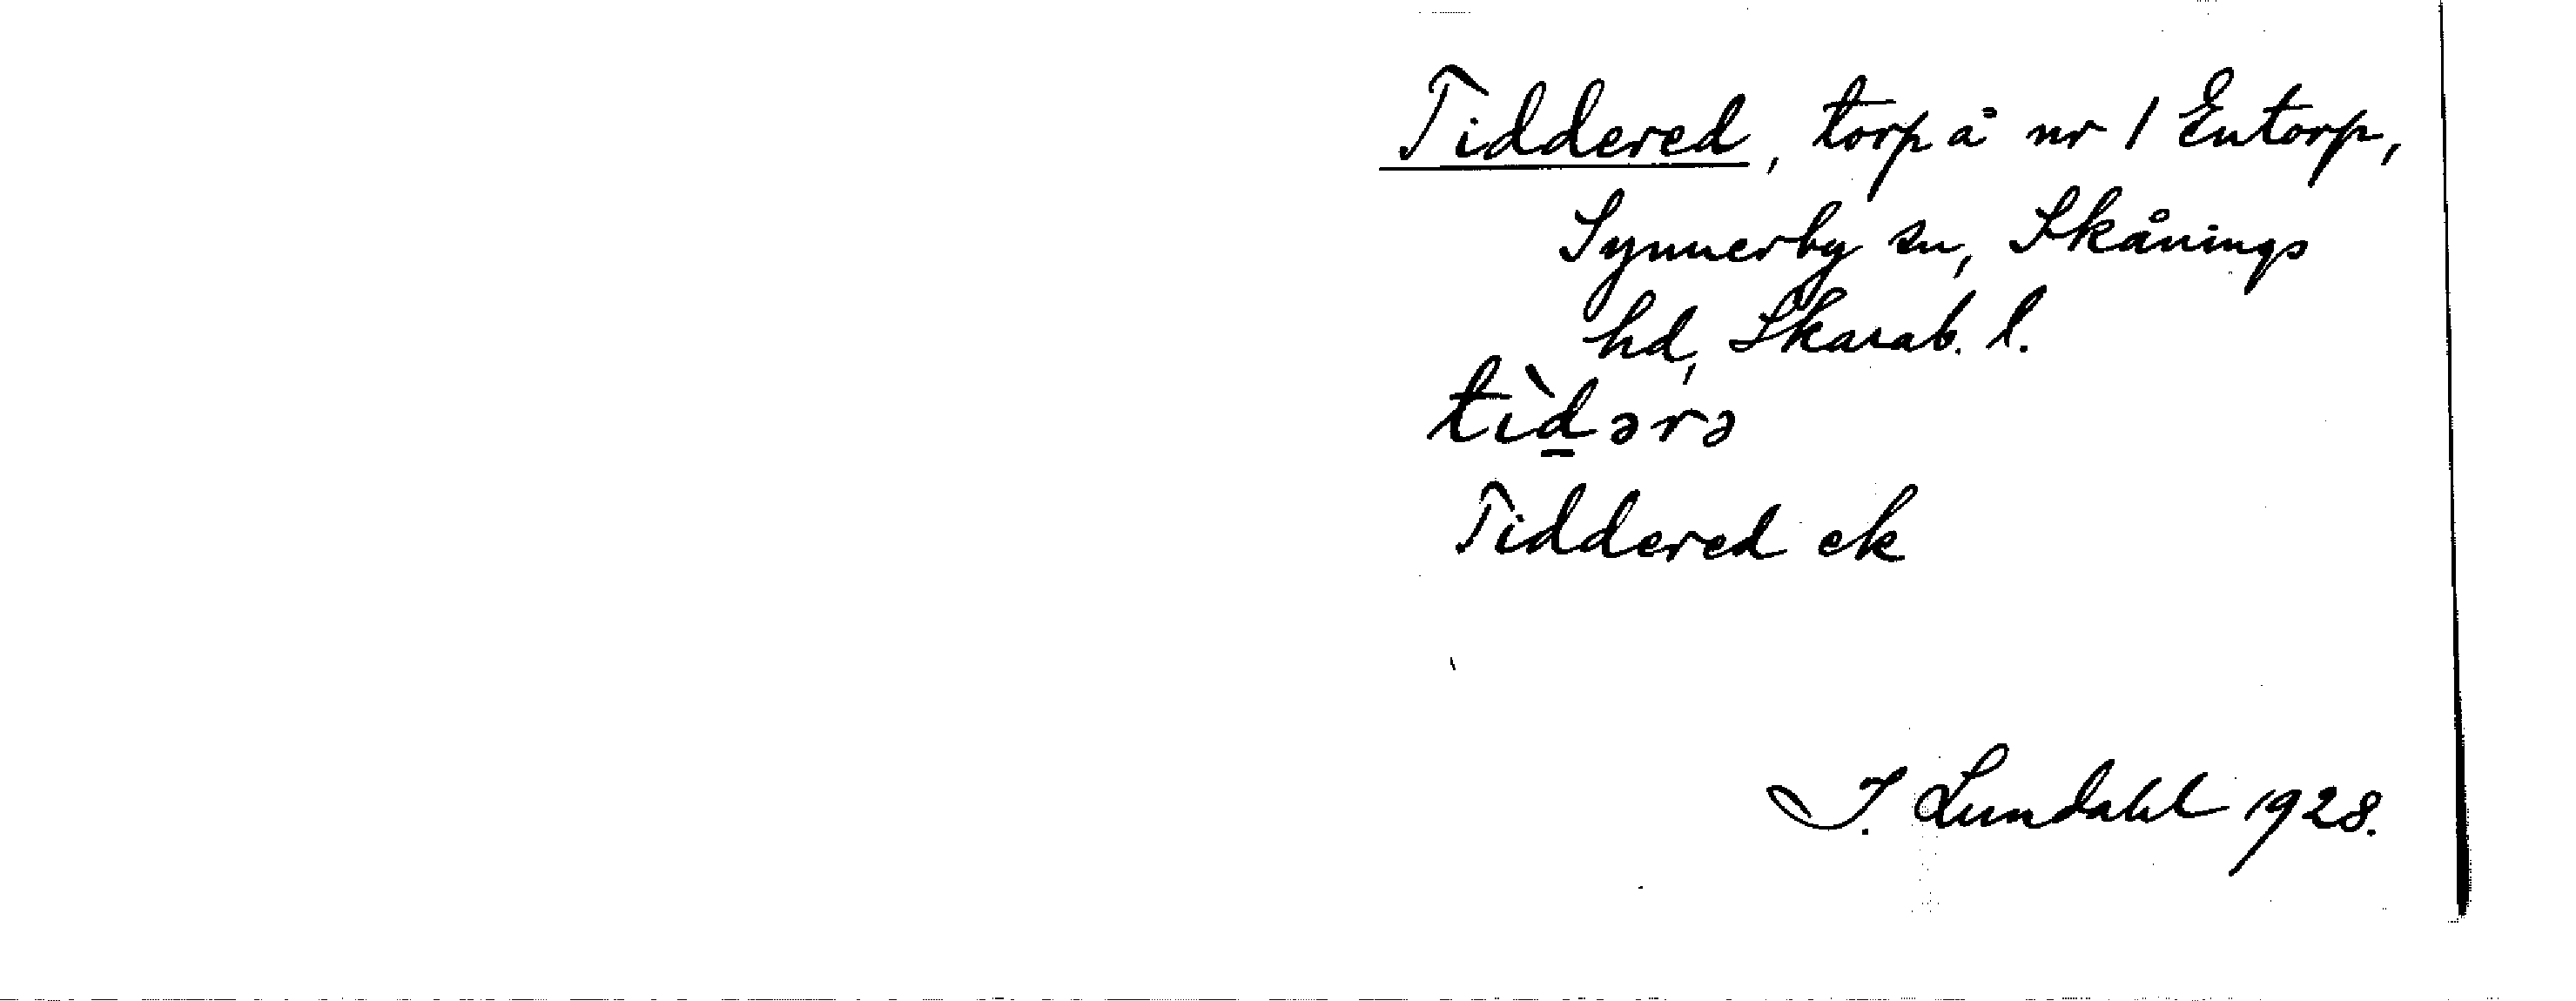 Tiddered, torp å nr 1 Entorp,
Synnerby sn, Skånings
hd, Skarab. l.
tìd̲ərə
Tiddered ek
I. Lundahl 1928.